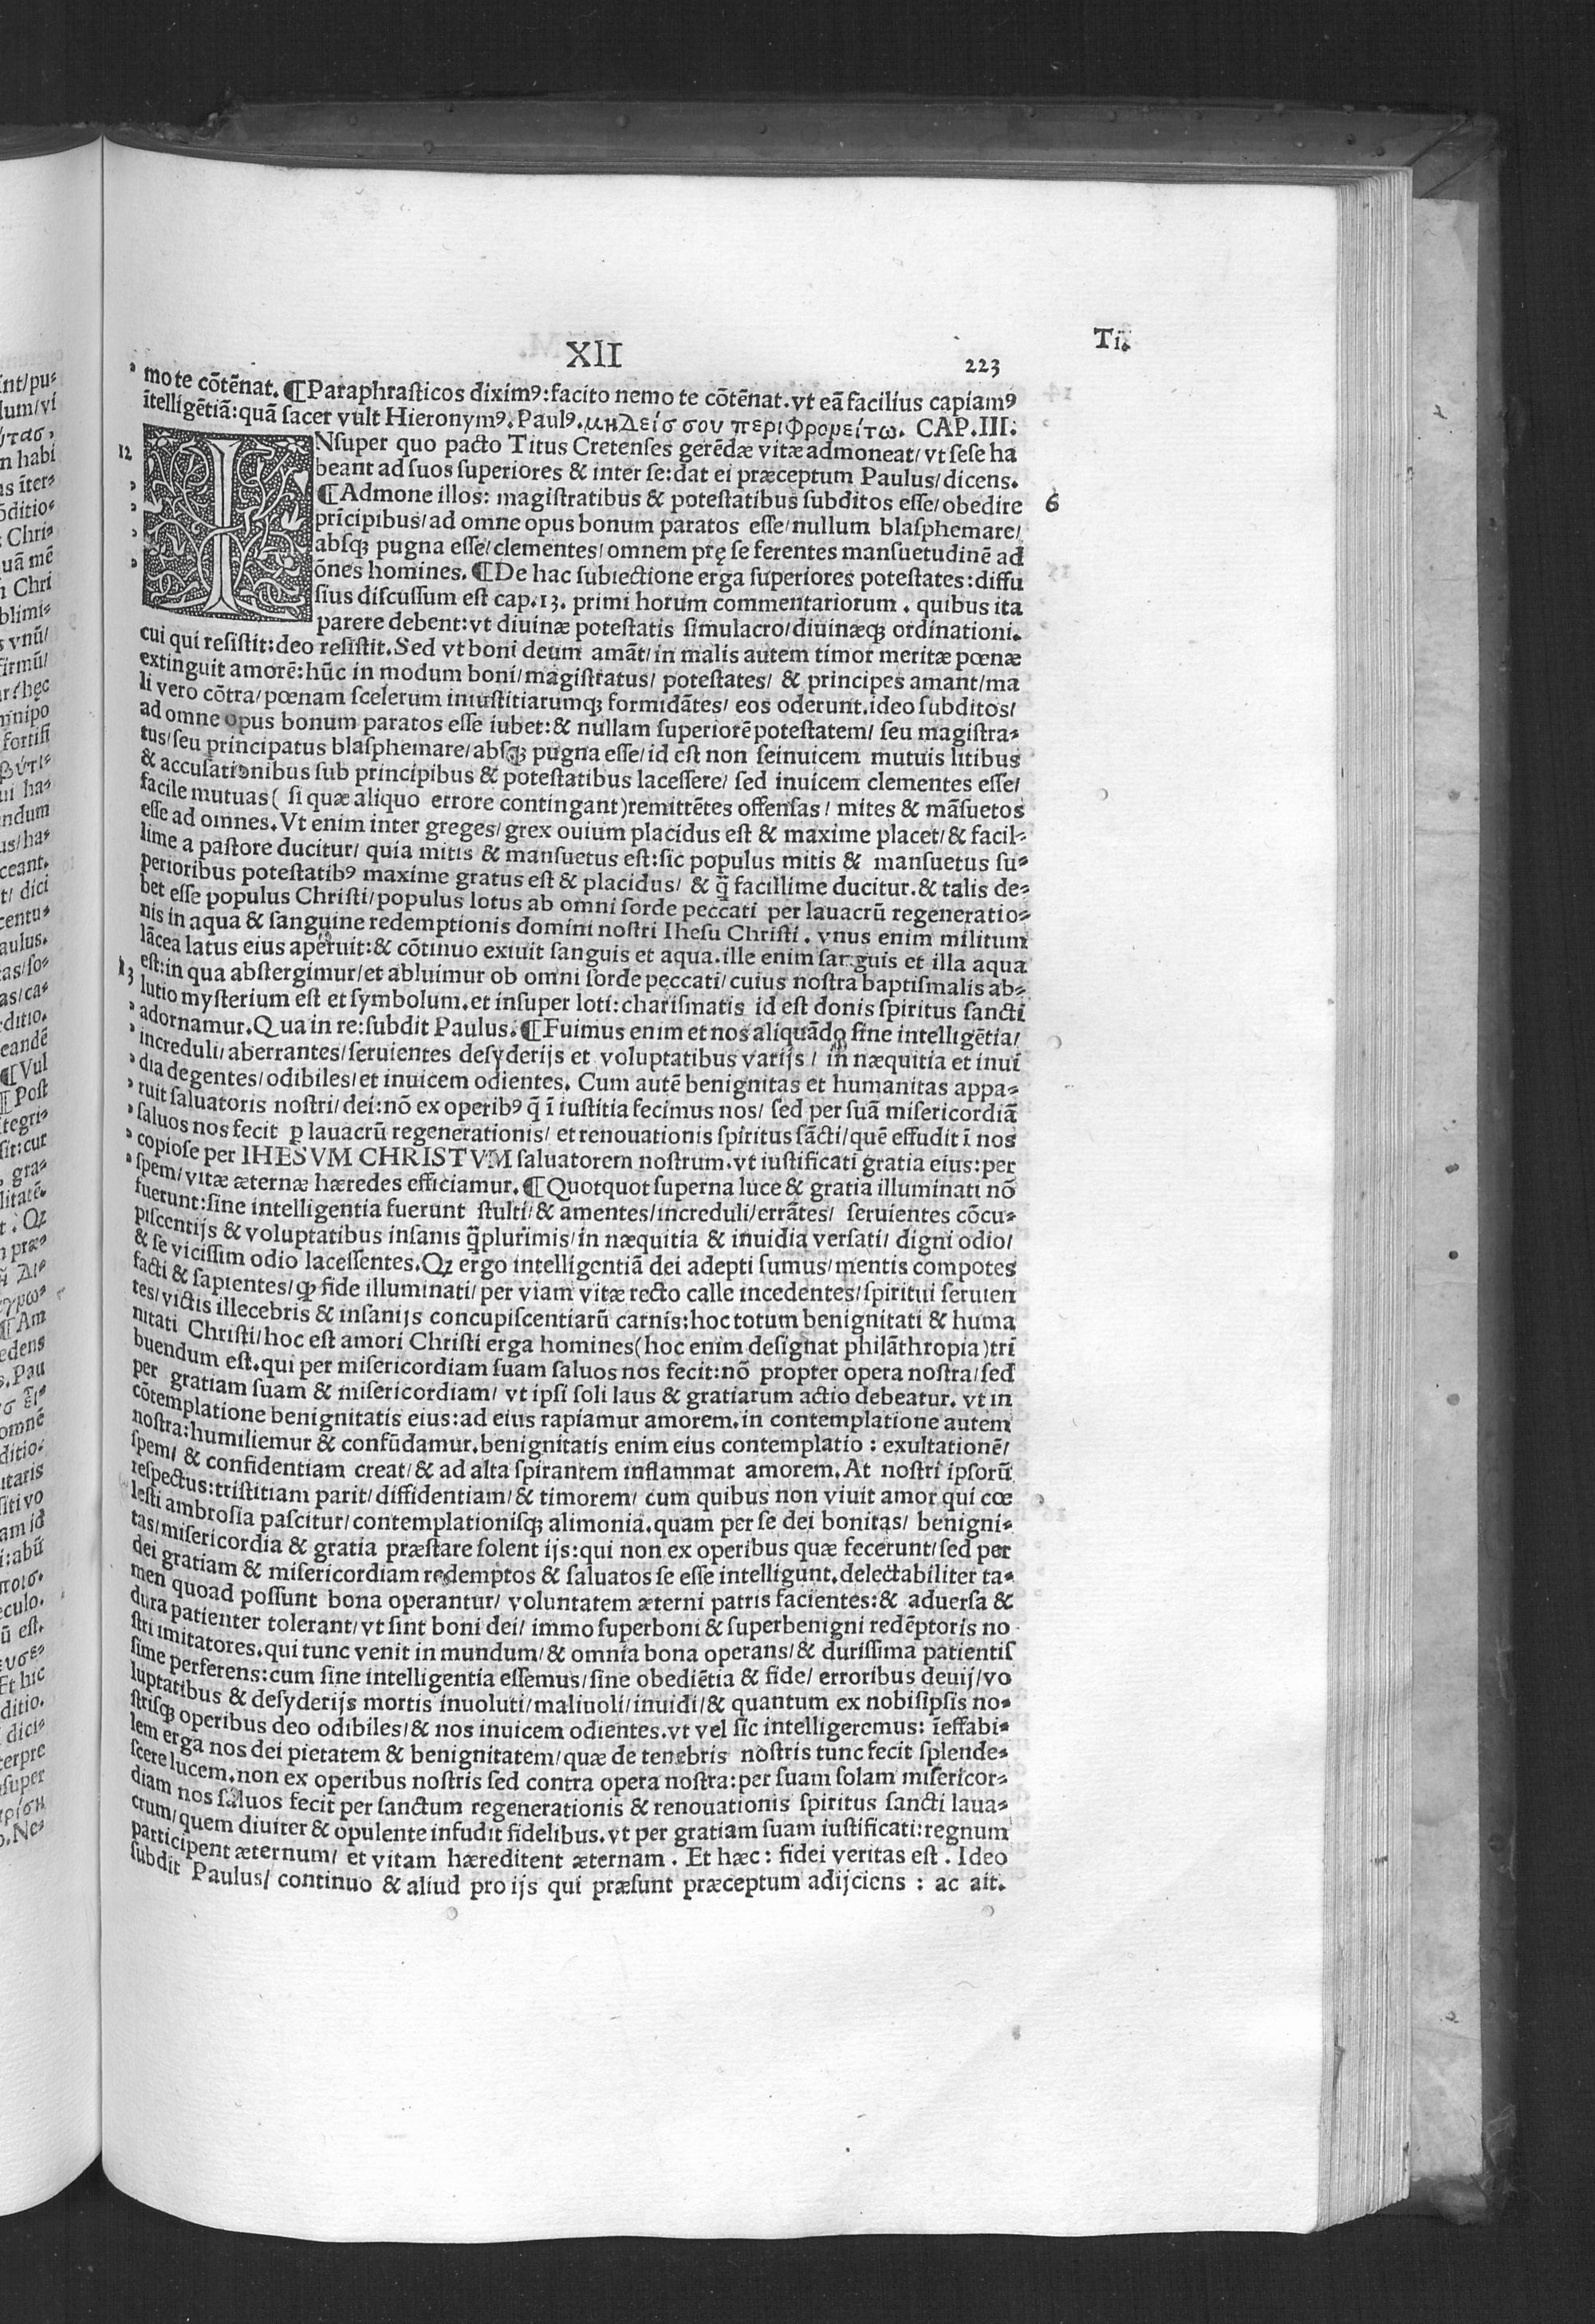 XII
223
Ti.
mo te cōtēnat. ¶Paraphrasticos diximꝰ: facito nemo te cōtēnat. vt eā facilius capiamꝰ
ītelligētiā: quā sacer vult Hieronymꝰ. Paulꝰ. μηδείσ σου περιφρομείτω. CAP. III.
12
INsuper quo pacto Titus Cretenses gerēdæ vitæ admoneat/ vt sese ha
beant ad suos superiores & inter se: dat ei præceptum Paulus/ dicens.
¶Admone illos: magistratibus & potestatibus subditos esse/ obedire
6
prīcipibus/ ad omne opus bonum paratos esse/ nullum blasphemare/
absqꝫ pugna esse/ clementes/ omnem prę se ferentes mansuetudinē ad
ōnes homines. ¶De hac subiectione erga superiores potestates: diffu
sius discussum est cap. 13. primi horum commentariorum. quibus ita
parere debent: vt diuinæ potestatis simulacro/ diuinæqꝫ ordinationi.
cui qui resistit: deo resistit. Sed vt boni deum amāt/ in malis autem timor meritæ pœnæ
extinguit amorē: hūc in modum boni/ magistratus/ potestates/ & principes amant/ ma
li vero cōtra/ pœnam scelerum iniustitiarumqꝫ formidātes/ eos oderunt. ideo subditos/
ad omne opus bonum paratos esse iubet: & nullam superiorē potestatem/ seu magistra-
tus/ seu principatus blasphemare/ absqꝫ pugna esse/ id est non seinuicem mutuis litibus
& accusationibus sub principibus & potestatibus lacessere/ sed inuicem clementes esse/
facile mutuas ( si quæ aliquo errore contingant) remittētes offensas/ mites & māsuetos
esse ad omnes. Vt enim inter greges/ grex ouium placidus est & maxime placet/ & facil-
lime a pastore ducitur/ quia mitis & mansuetus est: sic populus mitis & mansuetus su-
perioribus potestatibꝰ maxime gratus est & placidus/ & q̄ facillime ducitur. & talis de-
bet esse populus Christi/ populus lotus ab omni sorde peccati per lauacrū regeneratio-
nis in aqua & sanguine redemptionis domini nostri Ihesu Christi. vnus enim militum
lācea latus eius aperuit: & cōtinuo exiuit sanguis et aqua. ille enim sanguis et illa aqua
13
est: in qua abstergimur/ et abluimur ob omni sorde peccati/ cuius nostra baptismalis ab-
lutio mysterium est et symbolum. et insuper loti: charismatis id est donis spiritus sancti
adornamur. Qua in re: subdit Paulus. ¶Fuimus enim et nos aliquādo sine intelligētia/
increduli/ aberrantes/ seruientes desyderijs et voluptatibus varijs/ in næquitia et inui
dia degentes/ odibiles/ et inuicem odientes. Cum autē benignitas et humanitas appa-
ruit saluatoris nostri/ dei: nō ex operibꝰ q̄ ī iustitia fecimus nos/ sed per suā misericordiā
saluos nos fecit ꝑ lauacrū regenerationis/ et renouationis spiritus sācti/ quē effudit ī nos
copiose per IHESVM CHRISTVM saluatorem nostrum. vt iustificati gratia eius: per
spem/ vitæ æternæ hæredes efficiamur. ¶Quotquot superna luce & gratia illuminati nō
fuerunt: sine intelligentia fuerunt stulti/ & amentes/ increduli/ errātes/ seruientes cōcu-
piscentijs & voluptatibus insanis q̄plurimis/ in næquitia & inuidia versati/ digni odio/
& se vicissim odio lacessentes. Qꝫ ergo intelligentiā dei adepti sumus/ mentis compotes
facti & sapientes/ qꝫ fide illuminati/ per viam vitæ recto calle incedentes/ spiritui seruien
tes/ victis illecebris & insanijs concupiscentiarū carnis: hoc totum benignitati & huma
nitati Christi/ hoc est amori Christi erga homines (hoc enim designat philāthropia) tri
buendum est. qui per misericordiam suam saluos nos fecit: nō propter opera nostra/ sed
per gratiam suam & misericordiam/ vt ipsi soli laus & gratiarum actio debeatur. vt in
cōtemplatione benignitatis eius: ad eius rapiamur amorem. in contemplatione autem
nostra: humiliemur & confūdamur. benignitatis enim eius contemplatio: exultationē/
spem/ & confidentiam creat/ & ad alta spirantem inflammat amorem. At nostri ipsorū
respectus: tristitiam parit/ diffidentiam/ & timorem/ cum quibus non viuit amor qui cœ
lesti ambrosia pascitur/ contemplationisqꝫ alimonia. quam per se dei bonitas/ benigni-
tas/ misericordia & gratia præstare solent ijs: qui non ex operibus quæ fecerunt/ sed per
dei gratiam & misericordiam redemptos & saluatos se esse intelligunt. delectabiliter ta-
men quoad possunt bona operantur/ voluntatem æterni patris facientes: & aduersa &
dura patienter tolerant/ vt sint boni dei/ immo superboni & superbenigni redēptoris no-
stri imitatores. qui tunc venit in mundum/ & omnia bona operans/ & durissima patientis
sime perferens: cum sine intelligentia essemus/ sine obediētia & fide/ erroribus deuij/ vo
luptatibus & desyderijs mortis inuoluti/ maliuoli/ inuidi/ & quantum ex nobisipsis no-
strisqꝫ operibus deo odibiles/ & nos inuicem odientes. vt vel sic intelligeremus: īeffabi-
lem erga nos dei pietatem & benignitatem/ quæ de tenebris nostris tunc fecit splende-
scere lucem. non ex operibus nostris sed contra opera nostra: per suam solam misericor-
diam nos saluos fecit per sanctum regenerationis & renouationis spiritus sancti laua-
crum/ quem diuiter & opulente infudit fidelibus. vt per gratiam suam iustificati: regnum
participent æternum/ et vitam hæreditent æternam. Et hæc: fidei veritas est. Ideo
subdit Paulus/ continuo & aliud pro ijs qui præsunt præceptum adijciens: ac ait.